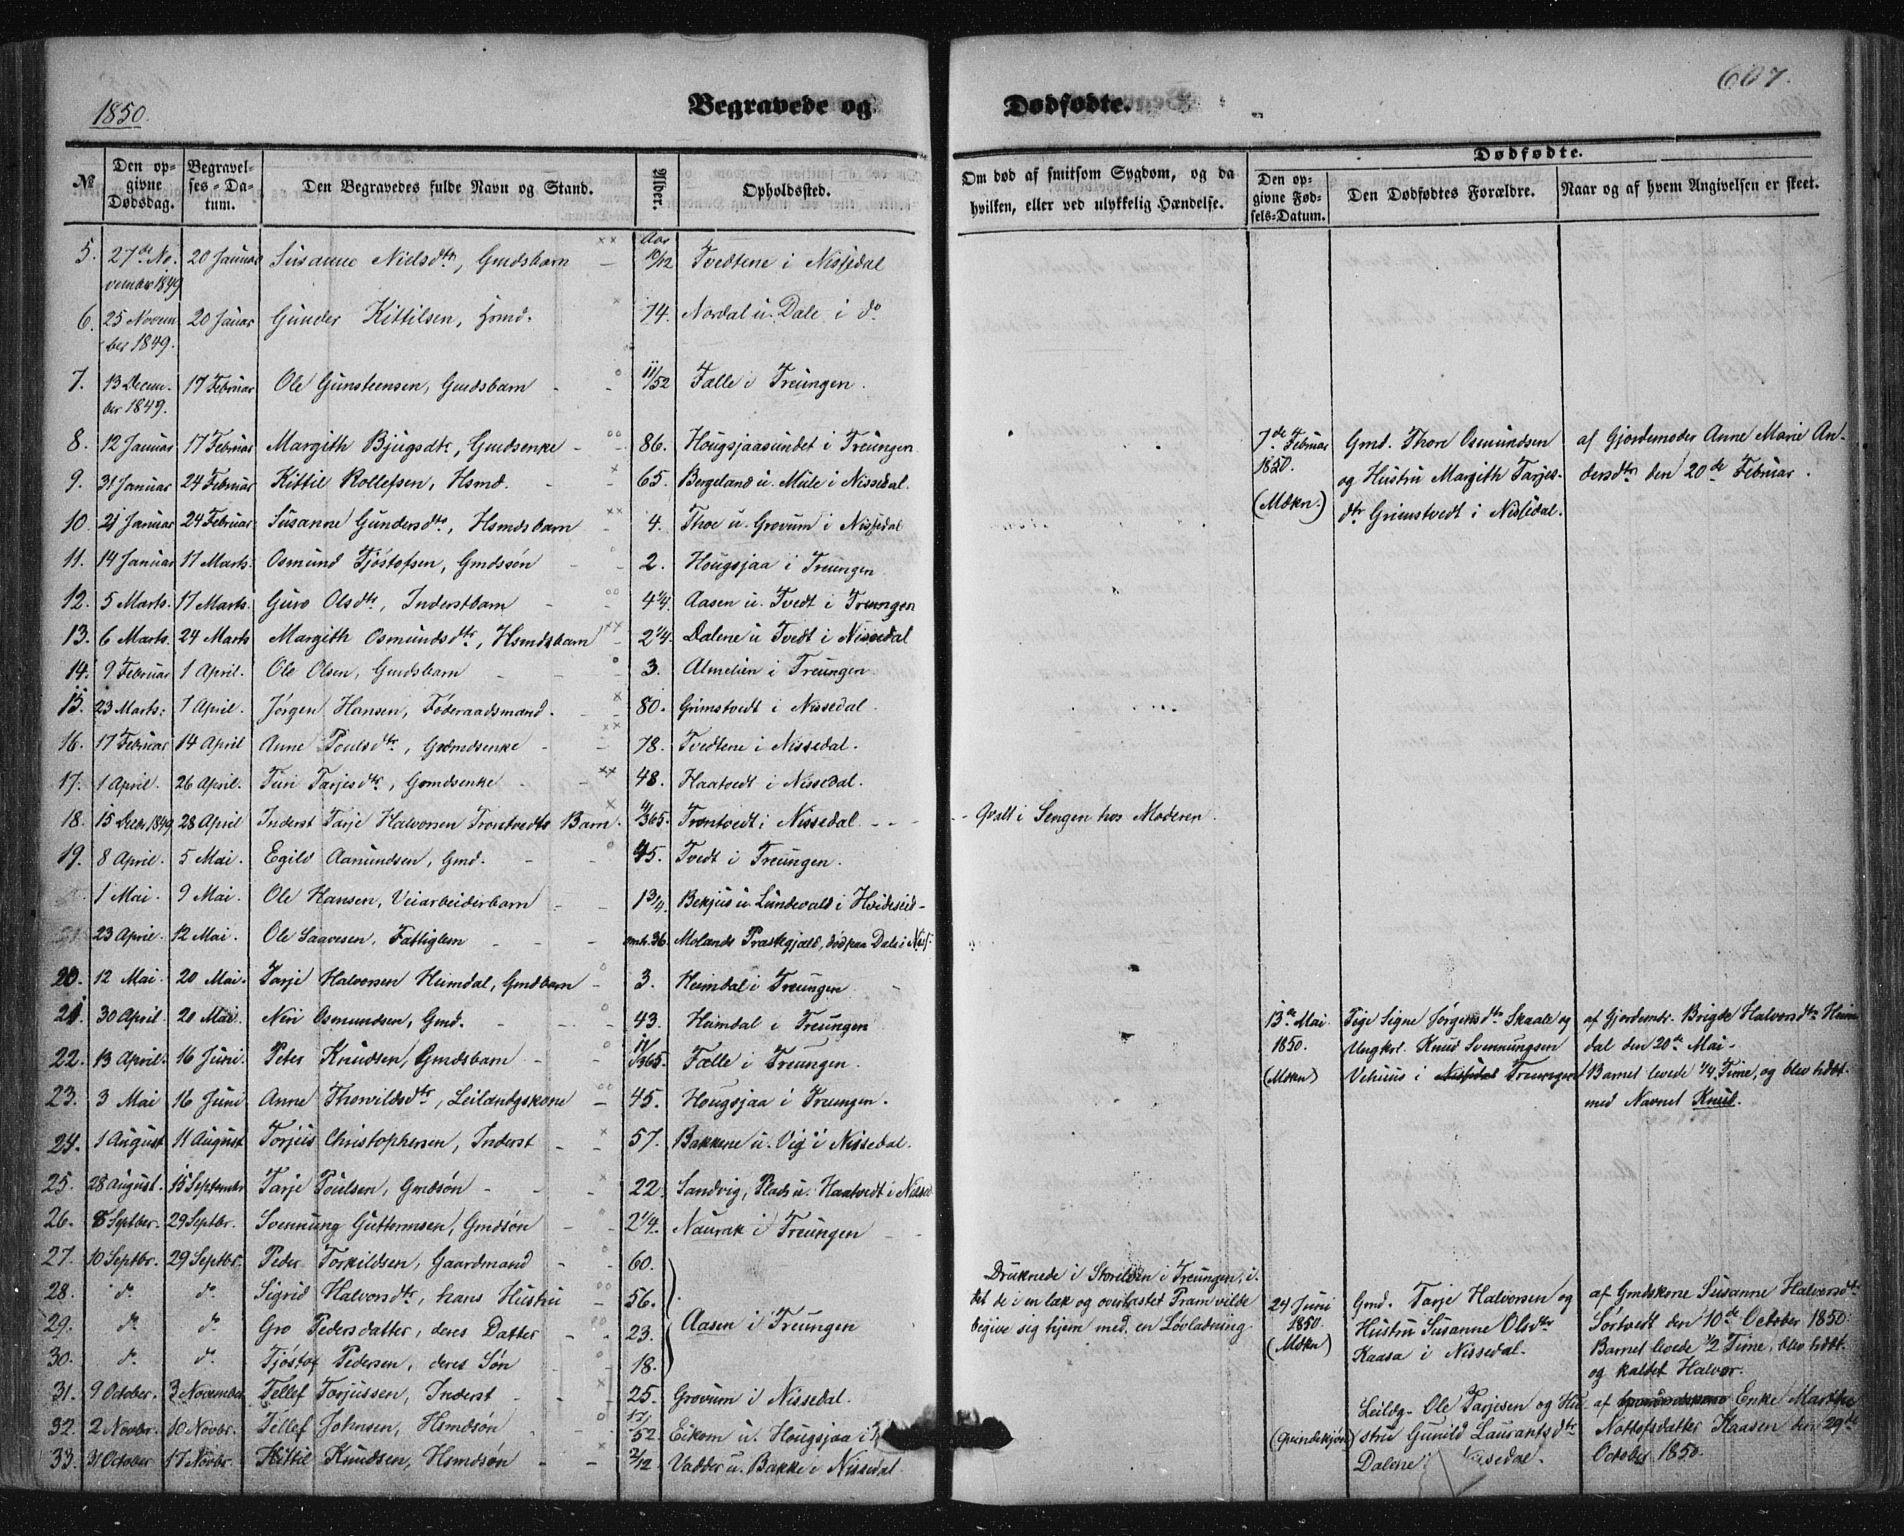 1850.
Begravede og Dødfødte.
607.
№ | Den opgivne Dødsdag. | Begravelses-Datum. | Den Begravedes fulde Navn og Stand. | Alder. | Opholdssted. | Om død af smitsom Sygdom, og da hvilken, eller ved ulykkelig Hændelse. | Dødfødte. | Den opgivne Fødsels-Datum. | Den Dødfødtes Forældre. | Naar og af hvem Angivelsen er skeet.
5. 27de November 1849 20 Januar Susanne Nielsdtr, Gmdsbarn Aar 10/12 Tvedtene i Nissedal
6. 25 November 1849. 20 Januar Gunder Kittilsen, Hsmd. 74. Nordal u. Dale i do
7. 13 December 1849. 17 Februar Ole Gunsteensen, Gmdsbarn 11/52 Falle i Treungen.
8. 12 Januar 17 Februar Margith Bjugsdtr, Gmdsenke 86. Hougsjaasundet i Treungen
9. 31 Januar 24 Februar Kittil Rollefsen, Hsmd. 65. Bergeland u. Mule i Nissedal.
10. 21 Januar 24 Februar Susanne Gundersdtr, Hsmdsbarn 4. Thoe u. Grovum i Nissedal
11. 14 Januar 17 Marts. Osmund Tjøstofsen, Gmdssøn 2. Hougsjaa i Treungen
12. 5 Marts. 17 Marts. Guro Olsdtr, Inderstbarn 4 1/4. Aasen u. Tvedt i Treungen
13. 6 Marts. 24 Marts Margith Osmundsdtr, Hsmdsbarn 2 1/4. Dalene u Tvedt i Nissedal
14. 9 Februar 1 April. Ole Olsen, Gmdsbarn 3. Almelien i Treungen
15. 23 Marts. 1 April. Jørgen Hansen, Føderaadsmand. 80. Grimstvedt i Nissedal.
16. 17 Februar 14 April Anne Poulsdtr, Grdmdsenke 78. Tvedtene i Nissedal.
17. 1 April. 26 April. Turi Tarjesdtr, Gmdsenke 48. Haatvedt i Nissedal.
18. 15 Decbr 1849 28 April Inderst Tarje Halvorsen Trontvedts Barn. 4/365. Trontvedt i Nissedal - Qvalt i Sengen hos Moderen.
19. 8 April. 5 Mai. Egilv Aamundsen, Gmd. 45. Tvedt i Treungen.
1 Mai. 9 Mai. Ole Hansen, Veiarbeiderbarn 1 3/4. Bekjus u. Lundevald i Hvideseid
23 April. 12 Mai. Ole Saavesen, Fattiglem omtr. 36. Molands Præstegjæld, død paa Dale i Niss.
20. 12 Mai 20 Mai. Tarje Halvorsen Heimdal, Gmdbarn 3. Heimdal i Treungen
21. 30 April. 20 Mai. Neri Osmundsen, Gmd. 43. Heimdal i Treungen
22. 13 April. 16 Juni. Peter Knudsen, Gmdsbarn 11/365. Fælle i Treungen.
23. 3 Mai 16 Juni Anne Thorvildsdtr, Leilændgskone 45. Hougsjaa i Treungen.
24. 1 August 11 August Torjus Christophersen, Inderst 57. Bakkene u. Vig i Nissedal.
25. 28 August. 15 Septembr Tarje Poulsen, Gmdsøn 22. Sandvig, Plads u. Haatvedt i Nissed
26. 8 Septber. 29 Septbr. Svennung Guttormsen, Gmdsøn 2 1/4. Naurak i Treungen
27. 10 Septbr. 29 Septbr. Peder Torkildsen, Gaardmand 60.
28. do. do. Sigrid Halvorsdtr, hans Hustru 56.
29. do. do. Gro Pedersdatter, deres Datter 23. Aasen i Treungen
30. do. do. Tjøstof Pedersen, deres Søn 18.
Druknede i Storelven i Treungen, i det de i en læk og overlastet Pram vilde begive sig hjem med en Løvladning.
31. 9 October. 3 November Tellef Torjussen, Inderst 25. Grovum i Nissedal.
32. 2 Novbr. 10 Novbr. Tellef Johnsen, Hsmdsøn 17/52 Eikom u. Hougsjaa i
33. 31 October 17 Novbr. Kittil Knudsen, Hsmdsøn 2/12 Vadder u. Bakke i Nissedal.
7de Februar 1850. (Mdkn.) Gmd. Thore Osmundsen og Hustru Margith Tarjesdtr Grimstvedt i Nissedal. af Gjordemoder Anne Marie Andersdtr den 20de Februar.
13de Mai 1850. (Mdkn) Pige Signe Jørgensdtr Skaale og Ungkrl. Knud Svennungsen Vehuus i Nissedal Treungen af Gjordemdr. Brigde Halvorsdtr Heimdal den 20de Mai - Barnet levede 1/4 Time, og blev hdøt. med Navnet Knud.
24 Juni 1850. (Mdkn) Gmd. Tarje Halvorsen og Hustru Susanne Olsdtr Kaasa i Nissedal. af Gmdskone Susanne Halvorsdtr Sørtvedt den 10de October 1850. Barnet levede 1/2 Time, blev hdøt. og kaldet Halvor.
(Qvindekjøn) Leildg. Ole Tarjesen og Hustru Gunild Laurantsdtr Dalene i Nissedal. af Enke Marthe Nottofsdatter Kaasen den 29de October 1850.